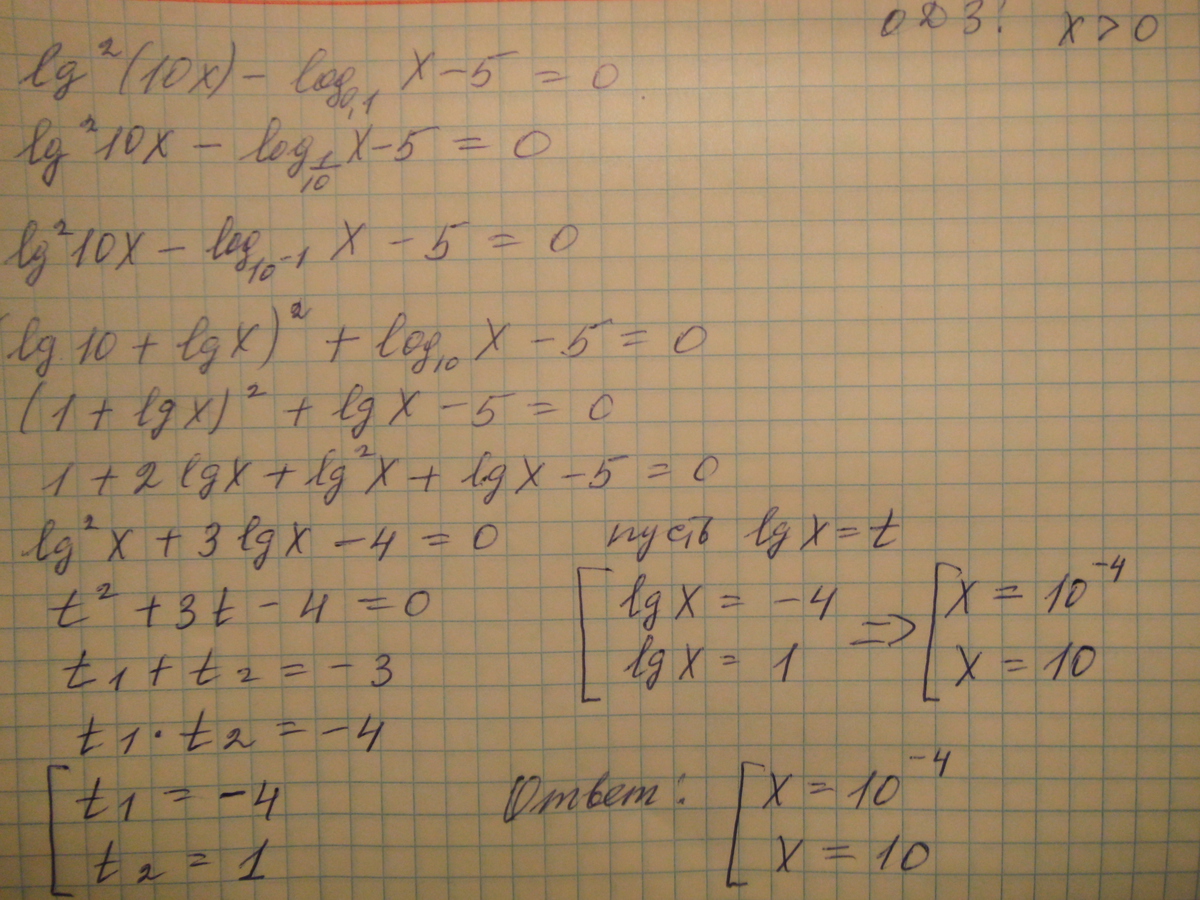 ОДЗ: x > 0
lg²(10x) − log₀,₁ x − 5 = 0
lg²10x − log_{1/10} x − 5 = 0
lg²10x − log_{10⁻¹} x − 5 = 0
(lg 10 + lg x)² + log₁₀ x − 5 = 0
(1 + lg x)² + lg x − 5 = 0
1 + 2 lg x + lg²x + lg x − 5 = 0
lg²x + 3 lg x − 4 = 0 пусть lg x = t
t² + 3t − 4 = 0 [ lg x = −4 => [ x = 10⁻⁴
t₁ + t₂ = −3 lg x = 1 x = 10
t₁ · t₂ = −4
[ t₁ = −4 Ответ: [ x = 10⁻⁴
t₂ = 1 x = 10